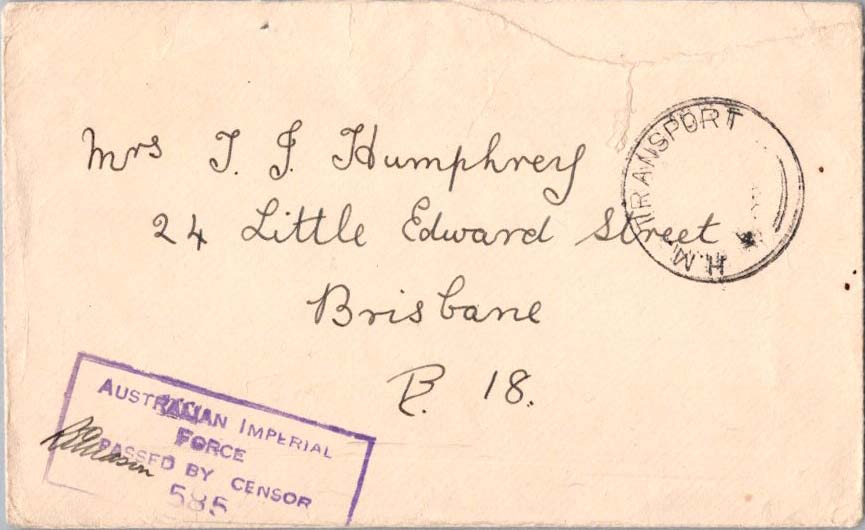 Mrs T. J. Humphrey
24 Little Edward Street
Brisbane
B. 18.
H.M. TRANSPORT
AUSTRALIAN IMPERIAL
FORCE
PASSED BY CENSOR
585